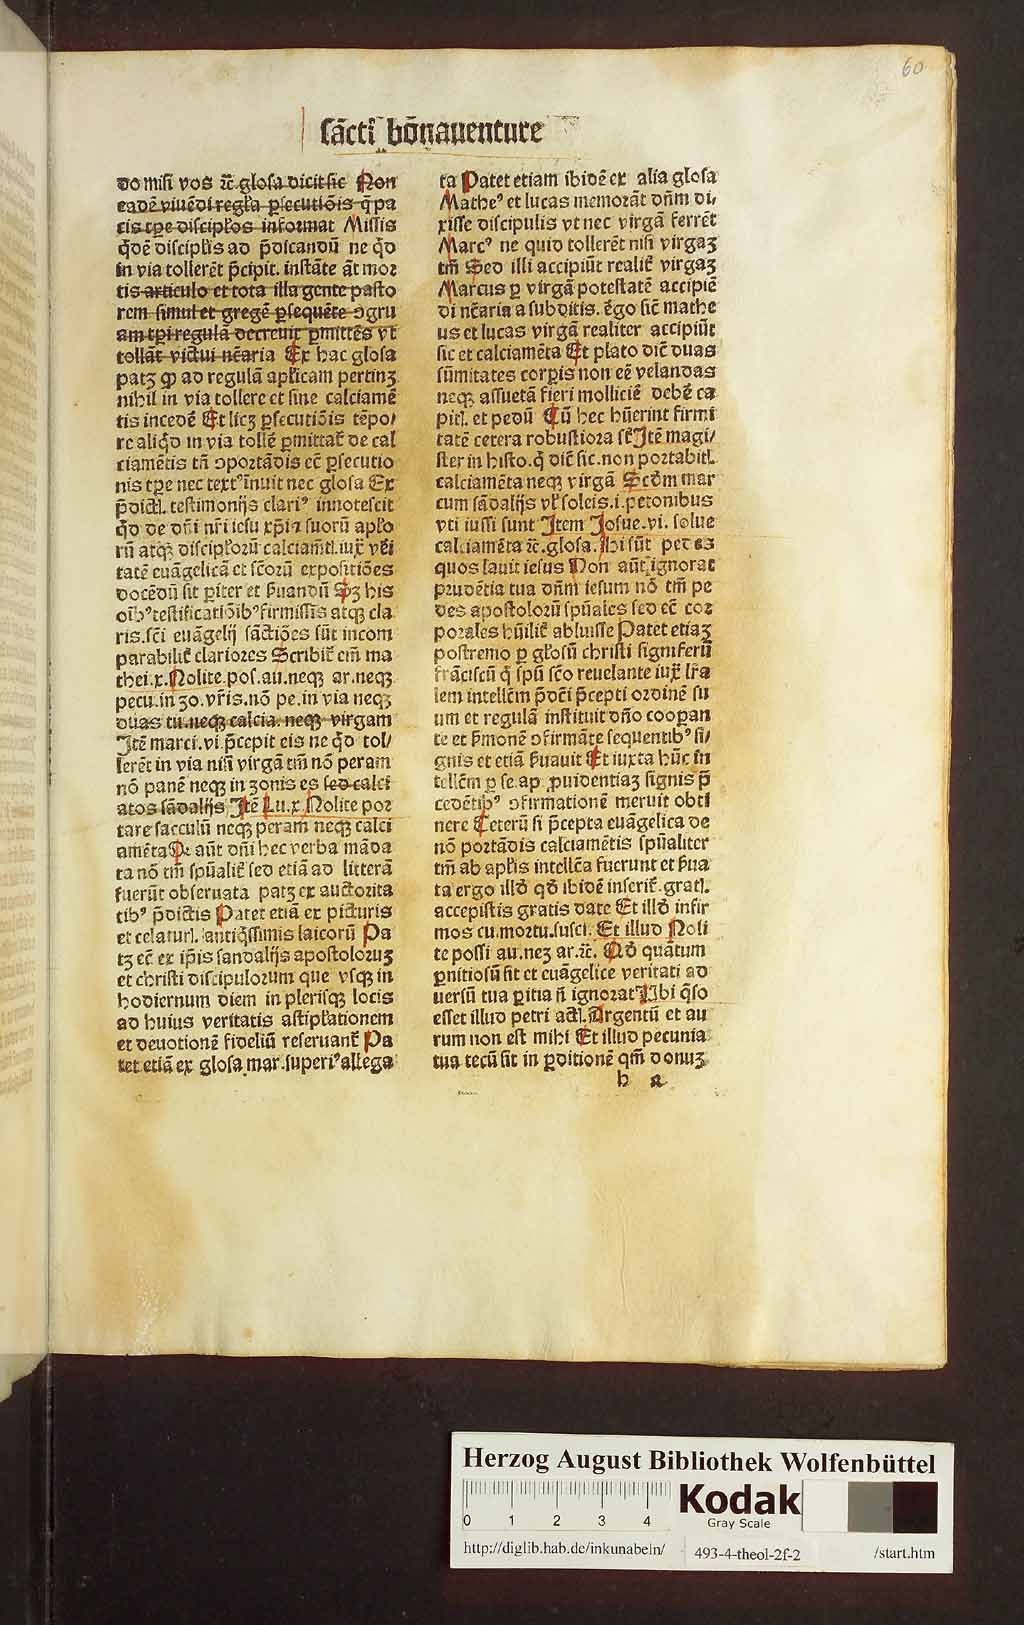 60
sācti bōnauenture
do misi vos ⁊c̄ glosa dicit sic Non
eadē viuēdi regl̕a ꝑsecutiōis q̄ pa
cis tꝑe discipl̕os informat Missis
q̄dē discipl̕is ad p̄dicandū ne q̄d
in via tollerēt p̄cipit. instāte āt mor
tis articulo et tota illa gente pasto
rem simul et gregē ꝑsequēte ꝯgru
am tꝑi regulā decreuit ꝑmittēs vt
tollāt victui nc̄aria Ex hac glosa
patꝫ ꝙ ad regulā apl̕icam pertinꝫ
nihil in via tollere et sine calciamē
tis incedē Et licꝫ ꝑsecutiōis tēpo/
re aliq̄d in via tollē ꝑmittat̕ de cal
ciamētis tn̄ ꝯportādis ec̄ ꝑsecutio
nis tꝑe nec textꝰ īnuit nec glosa Ex
p̄dictl. testimonijs clariꝰ innotescit
q̄d de dn̄i nr̄i iesu xp̄i ⁊ suorū apl̕o
rū atqꝫ discipl̕orū calciam̄tl. iux̄ v̄ei
tatē euāgelicā et sc̄orū expositiōes
docēdū sit ꝑiter et p̄uandū Sꝫ his
oīb̕ꝰ testificatiōib̕ꝰ firmissīs atqꝫ cla
ris. sc̄i euāgelij sāctiōes sūt incom
parabilit̕ clariores Scribit̕ em̄ ma
thei.x. Nolite pos. au. neqꝫ ar. neqꝫ
pecu. in ꝫo. vr̄is. nō pe. in via neqꝫ
duas tu. neqꝫ calcia. neqꝫ virgam
Itē marci.vi. p̄cepit eis ne q̄d tol/
lerēt in via nisi virgā tm̄ nō peram
nō panē neqꝫ in ꝫonis es sed calci
atos sādalijs Itē Lu.x. Nolite por
tare sacculū neqꝫ peram neqꝫ calci
amēta Q̕ aūt dn̄i hec verba māda
ta nō tm̄ spūalit̕ sed etiā ad litterā
fuerūt obseruata patꝫ ex auctorita
tib̕ꝰ p̄dictis Patet etiā ex picturis
et celaturl. antiq̄ssimis laicorū Pa
tꝫ ec̄ ex ip̄is sandalijs apostoloruꝫ
et christi discipulorum que vsqꝫ in
hodiernum diem in plerisqꝫ locis
ad huius veritatis astipl̕ationem
et deuotionē fideliū reseruant̕ Pa
tet etiā ex glosa mar. superiꝰ allega
ta Patet etiam ibidē ex alia glosa
Matheꝰ et lucas memorāt dn̄m di/
xisse discipulis vt nec virgā ferrēt
Marcꝰ ne quid tollerēt nisi virgaꝫ
tm̄ Sed illi accipiūt realit̕ virgaꝫ
Marcus ꝑ virgā potestatē accipiē
di nc̄aria a subditis. ergo sic̄ mathe
us et lucas virgā realiter accipiūt
sic et calciamēta Et plato dic̄ duas
sūmitates corꝑis non ec̄ velandas
neqꝫ assuetā fieri molliciē debē̕ ca
pitl. et pedū Cū hec hūerint firmi
tatē cetera robustiora st̕ Itē magi/
ster in histo. q̄ dic̄ sic. non portabitl.
calciamēta neqꝫ virgā Scd̄m mar
cum sādalijs vl̕ soleis.i. petonibus
vti iussi sunt Item Josue.vi. solue
calciamēta ⁊c̄. glosa. Ibi sūt pedes
quos lauit iesus Non aūt ignorat
prudētia tua dn̄m iesum nō tm̄ pe
des apostolorū spūales sed ec̄ cor
porales hūilit̕ abluisse Patet etiaꝫ
postremo ꝑ gl̕osū christi signiferū
frāciscū q̄ spū sc̄o reuelante iux̄ lr̄a
lem intellēm p̄dc̄i p̄cepti ordinē su
um et regulā instituit dn̄o cooꝑan
te et ẜmonē ꝯfirmāte sequentib̕ꝰ si/
gnis et etiā p̄uauit Et iuxta hūc in
tellēm ꝑ se. ap. ꝓuidentiaꝫ signis p̄
cedētib̕ꝰ ꝯfirmationē meruit obti
nere Ceterū si p̄cepta euāgelica de
nō portādis calciamētis spūaliter
tm̄ ab apl̕is intellc̄a fuerunt et p̄ua
ta ergo illd̄ qd̄ ibidē inserit̕. gratl.
accepistis gratis date Et illd̄ infir
mos cu. mortu. susci. Et illud Noli
te possi au. neꝫ ar. ⁊c̄. Qd̄ quātum
ꝑnitiosū sit et euāgelice veritati ad
uersū tua ꝑitia n̄ ignorat Ubi q̄so
esset illud petri actl. Argentū et au
rum non est mihi Et illud pecunia
tua tecū sit in ꝑditionē qm̄ donuꝫ
h a
Herzog August Bibliothek Wolfenbüttel
0 1 2 3 4
Kodak
Gray Scale
http://diglib.hab.de/inkunabeln/ 493-4-theol-2f-2 /start.htm